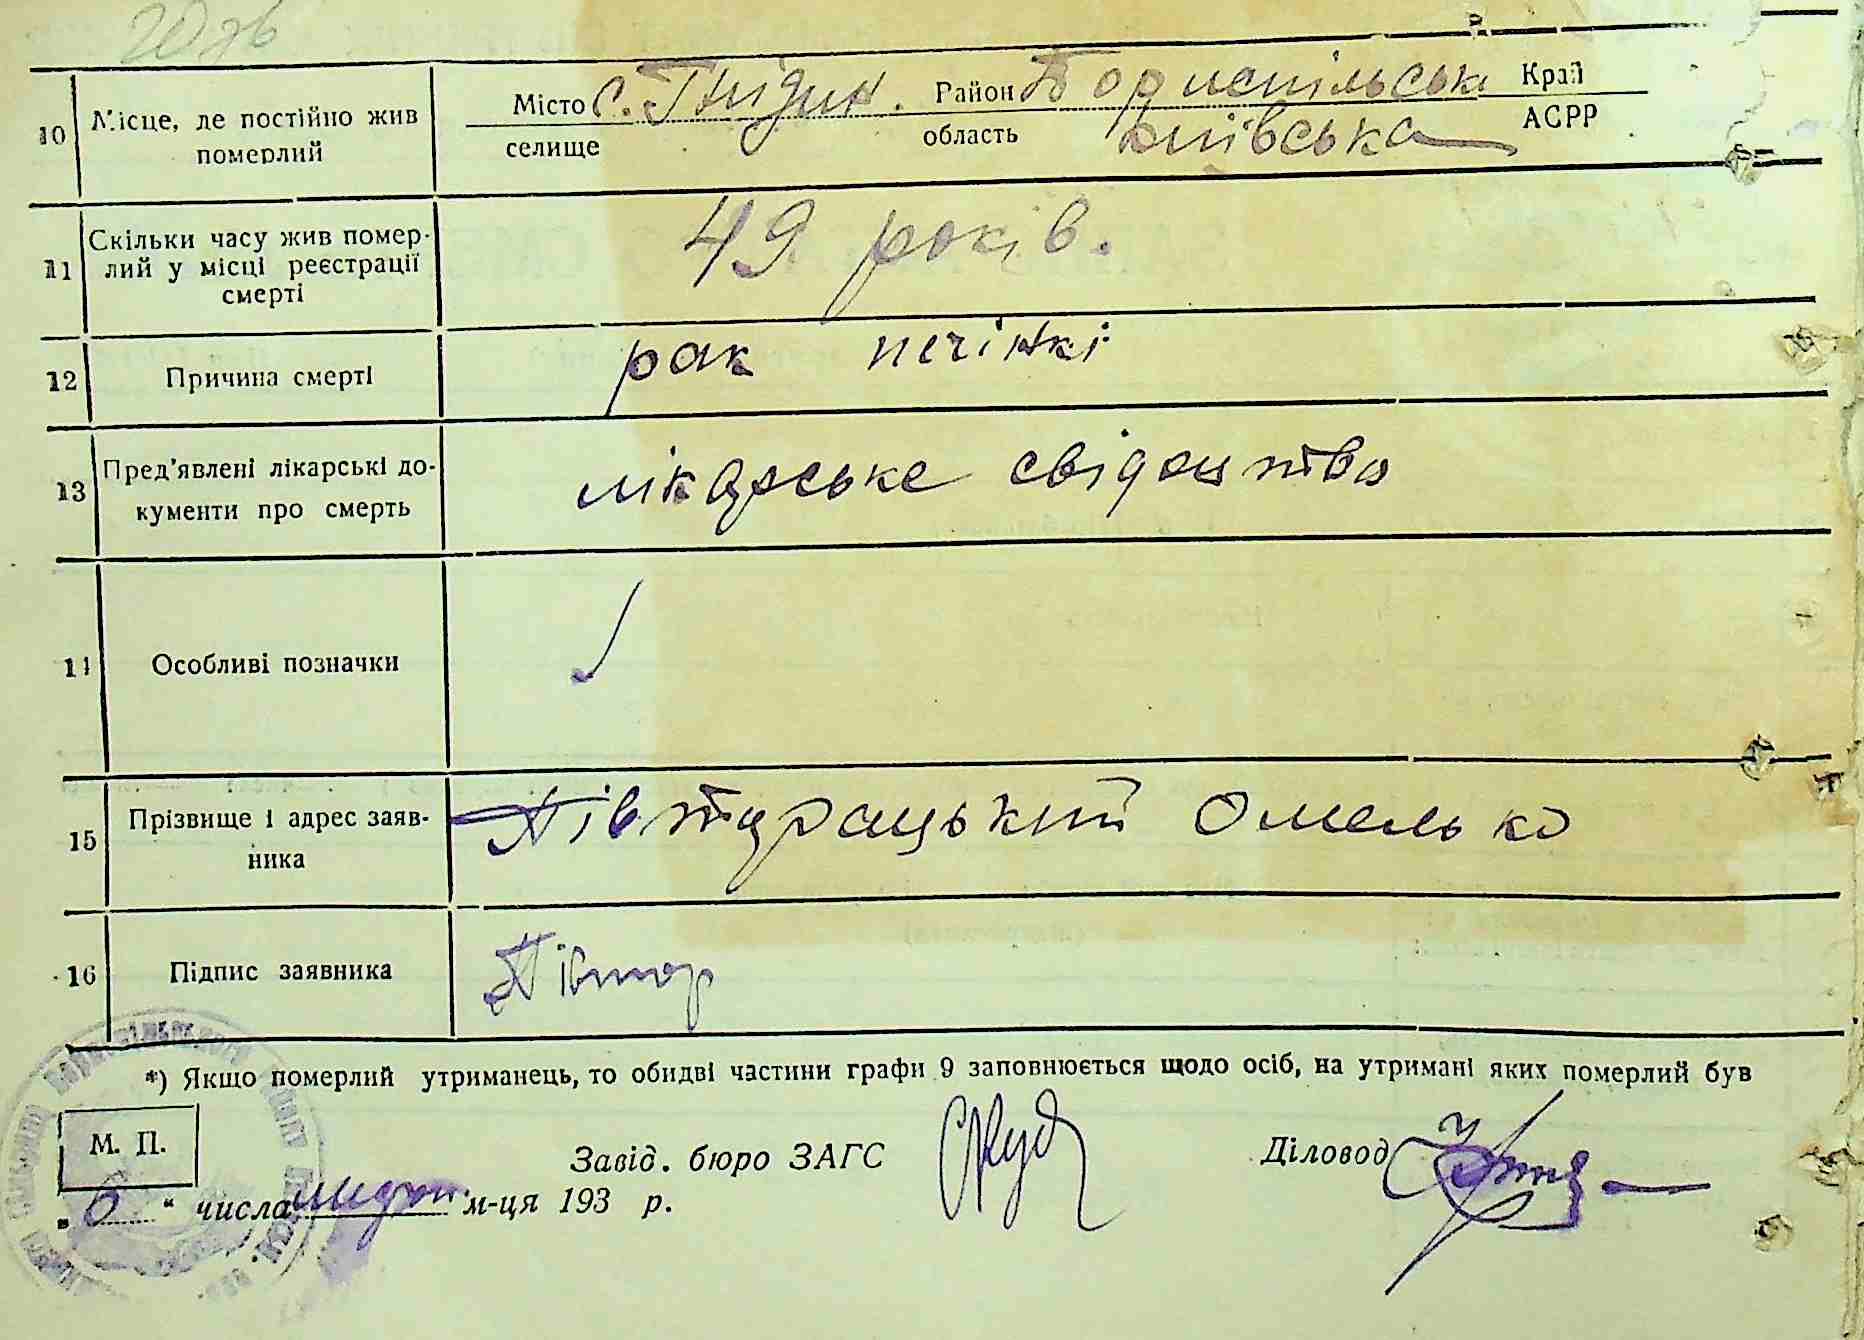 10 Місце, де постійно жив Місто с. Гнідин. Район Бориспільськ Край
померлий селище область Київська АСРР
11 Скільки часу жив помер-
лий у місці реєстрації
смерті
49 років.
12 Причина смерті рак печінкі
13 Пред'явлені лікарські до-
кументи про смерть
лікарське свідоцтво
14 Особливі позначки
15 Прізвище і адрес заяв-
ника
Півторацький Омелько
16 Підпис заявника Півтор
*) Якщо померлий утриманець, то обидві частини графи 9 заповнюється щодо осіб, на утримані яких померлий був
М. П.
Завід. бюро ЗАГС Діловод
„ 6 “ числа м-ця 193 р.